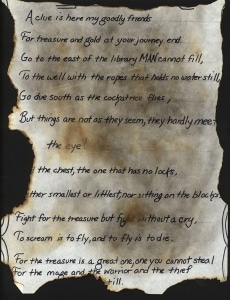 A clue is here my goodly friends
For treasure and gold at your journey end.
Go to the east of the library MAN cannot fill,
To the well with the ropes that holds no water still,
Go due south as the cockatrice flies,
But things are not as they seem, they hardly meet
the eye
the chest, the one that has no locks,
smallest or littlest, nor sitting on the blocks
Fight for the treasure but without a cry.
To scream is to fly, and to fly is to die.
For the treasure is a great one, one you cannot steal
For the mage and the warrior and the thief
till.